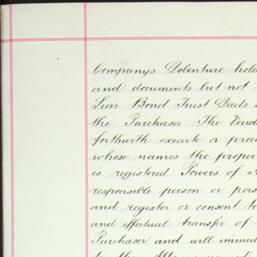 Companys Debenture hold
and documents but not
Lien Bond Trust Deeds
the Purchasers The Vend
forthwith execute or proc
whose names the proper
is registered Powers of
responsible person or pers
and register or consent to
and effectual transfer of
Purchaser and will immed